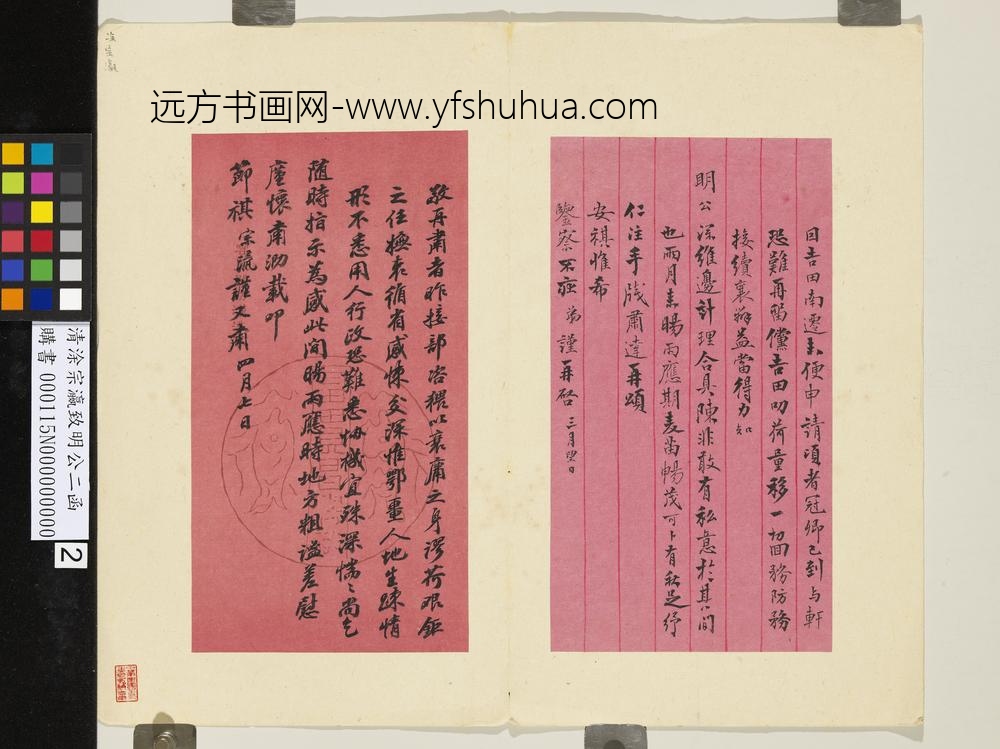 远方书画网-www.yfshuhua.com
涂宗瀛
因吉田南遷未便申請項者冠卿已到与軒
恐難再留儻吉田叨荷量移一切回務防務
接續襄辦益當得力知
明公深維邊計理合具陳非敢有私意於其間
也兩月來暘雨應期麦苗暢茂可卜有秋足纾
仁注手肅達再頌
安祺惟希
鑒察不莊 弟謹再啓 三月望日
敬再肅者昨接部咨猥以衰庸之身謬荷艰鉅
之任撫衷循省感悚交深惟鄂畺人地生疎情
形不悉用人行政恐難悉協機宜殊深惴惴尚乞
随時指示為感此間暘雨應時地方粗謐差慰
廑懷肅泐載叩
節祺 宗瀛謹又肅 四月七日
清涂宗瀛致明公二函
購書 000115N000000000
2